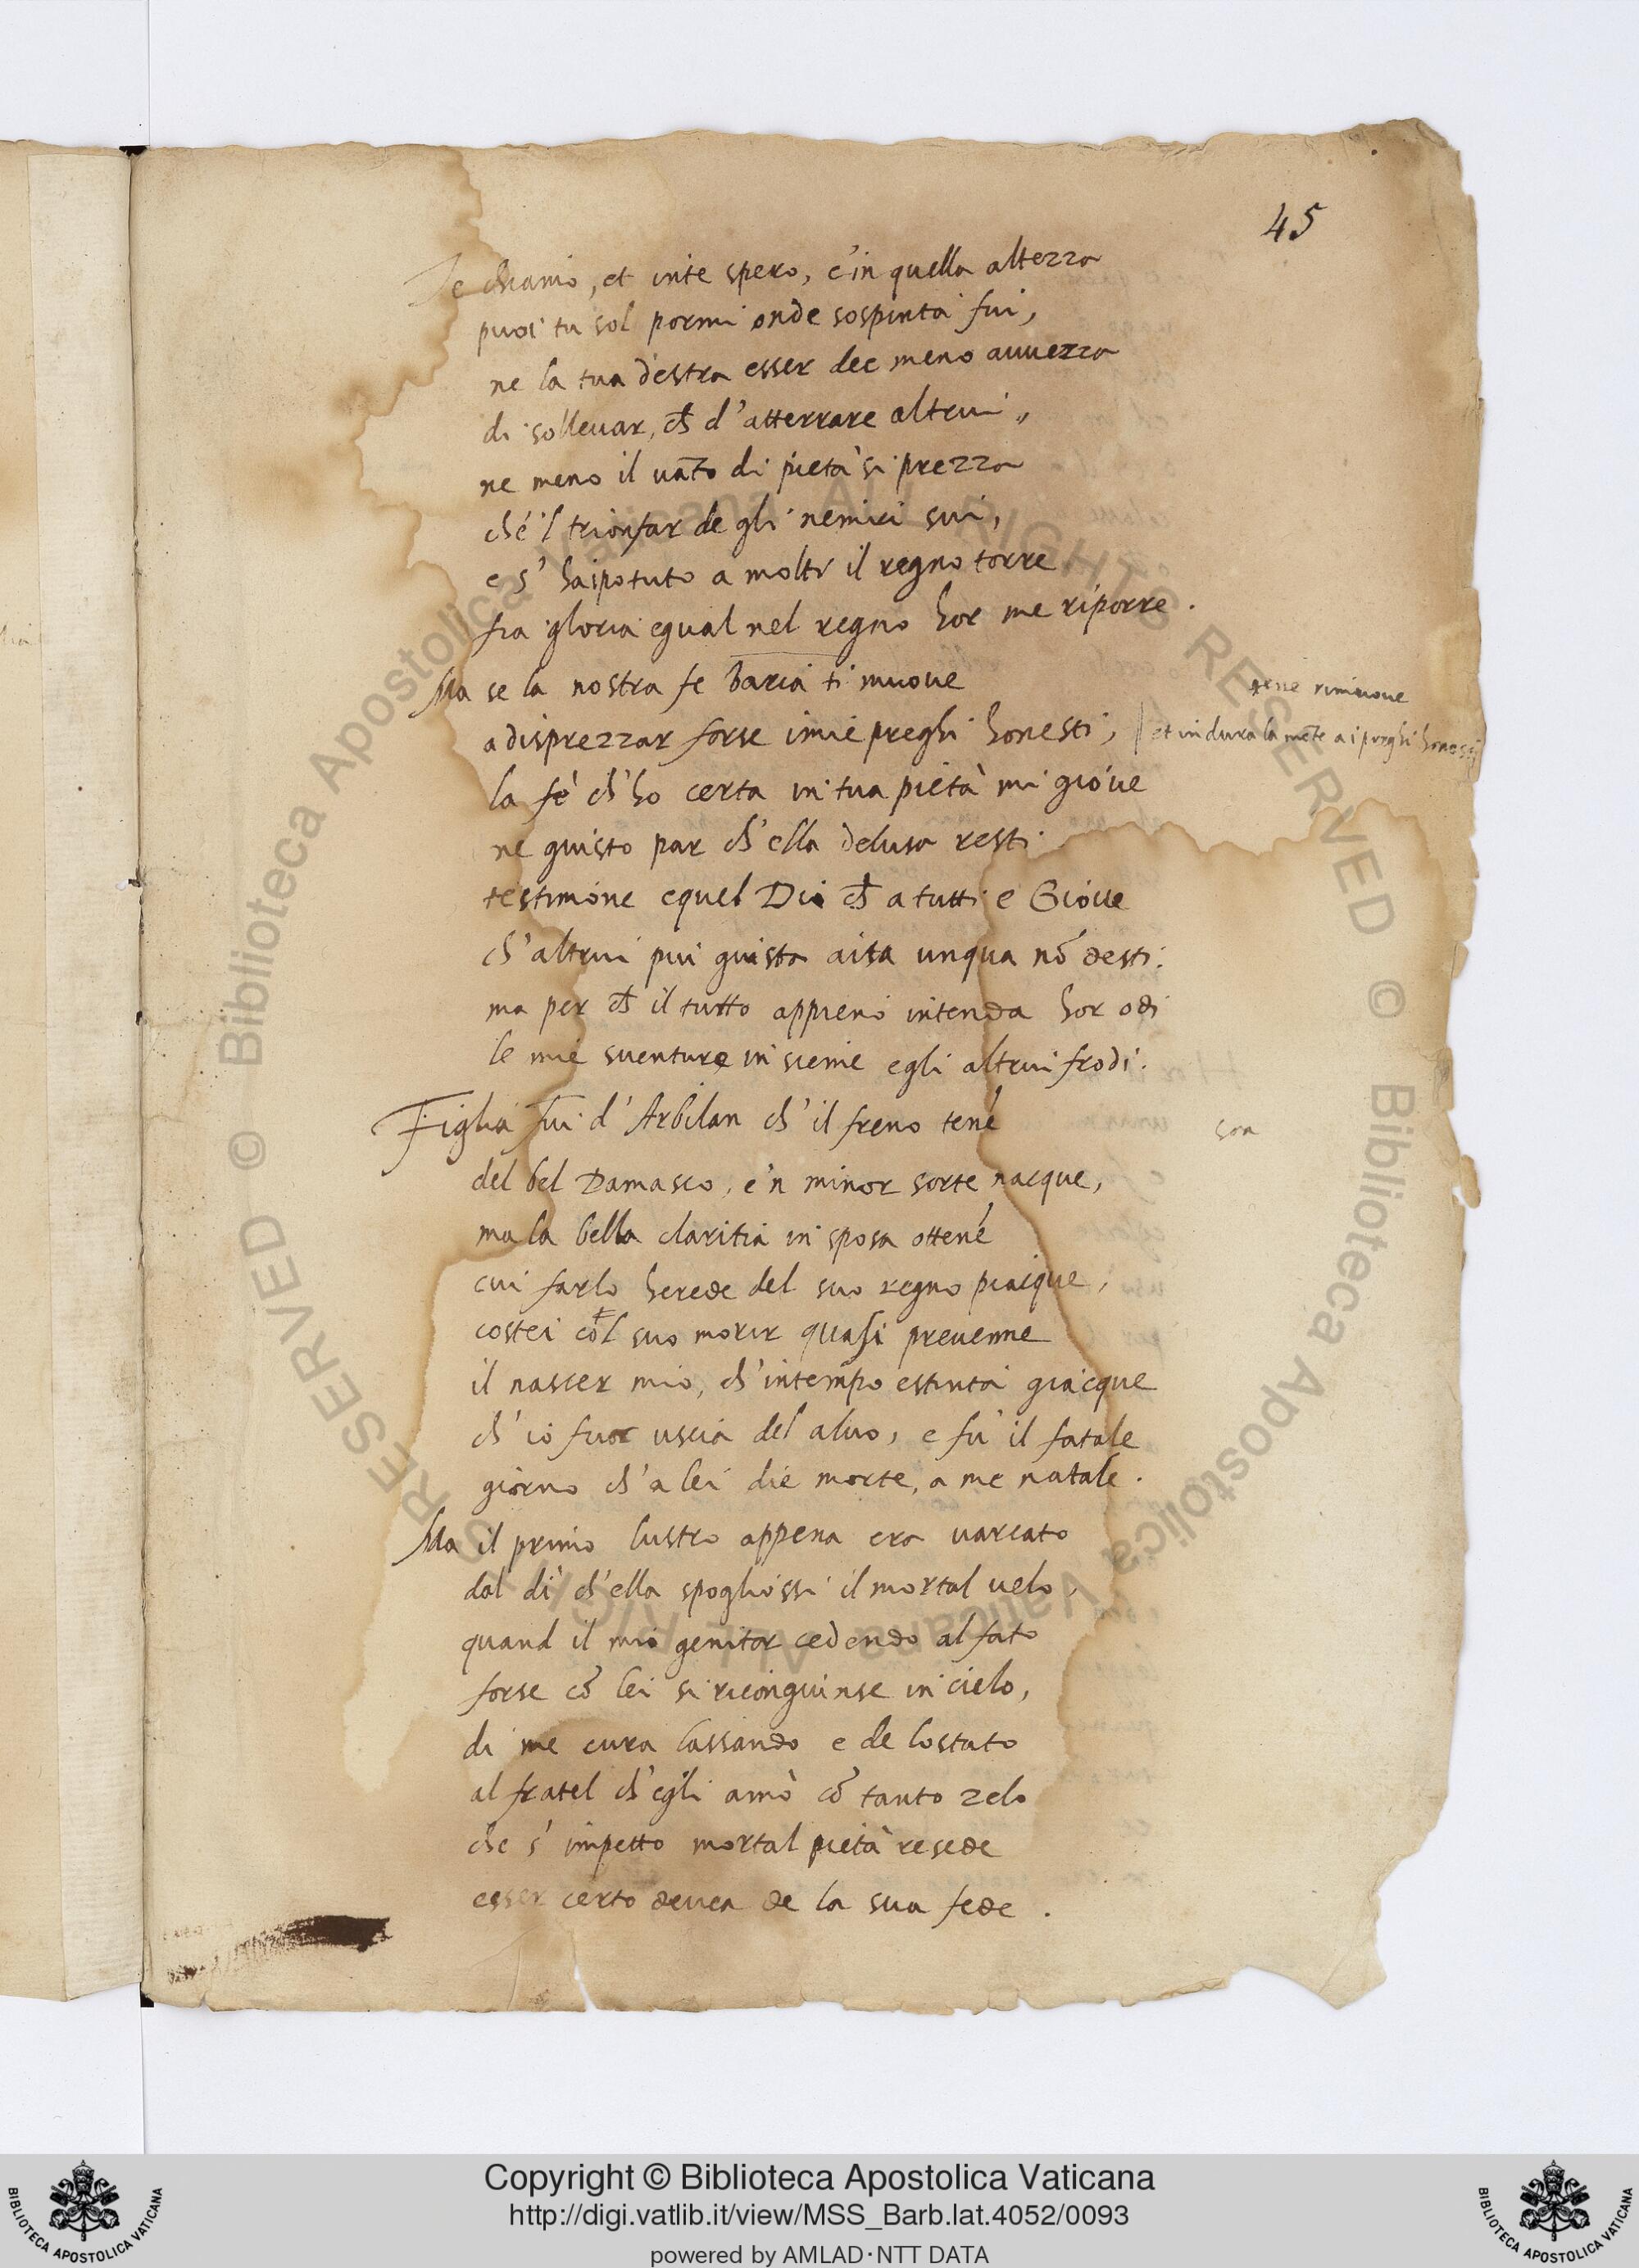 45
Te chiamo, et in te spero, e'in quella altezza
puoi tu sol pormi onde sospinta fui,
ne la tua destra esser dee meno avvezza
di sollevar, ch̃ d'atterrare altrui,
ne meno il vãto di pieta si prezza
che'l trionfar de gli nemici sui,
e s'hai potuto a molti il regno torre
fia gloria egual nel regno hor me riporre.
Ma se la nostra fe varia ti muove
rimuove
a disprezzar forse i miei preghi honesti,
et indura la mẽte a i preghi honesti
la fè ch'ho certa in tua pietà mi giove
ne giusto par ch'ella delusa resti
testimone e quel Dio ch̃ a tutti e Giove
ch'altrui piu giusta aita unqua nõ desti.
ma per ch̃ il tutto appieno intenda hor odi
le mie sventure insieme e gli altrui frodi.
Figlia fui d'Arbilan ch'il freno tene
son
del bel Damasco, e'n minor sorte nacque,
ma la bella claritia in sposa ottene
cui farlo herede del suo regno piacque,
costei cõl suo morir quasi prevenne
il nascer mio, ch'in tempo estinta giacque
ch'io fuor uscia del alvo, e fu il fatale
giorno ch'a lei die morte, a me natale.
Ma il primo lustro appena era varcato
dal dì ch'ella spogliossi il mortal velo,
quand il mio genitor cedendo al fato
forse cõ lei si ricongiunse in cielo,
di me cura lassando e de lo stato
al fratel ch'egli amò cõ tanto zelo
che s'in petto mortal pietà resede
esser certo devea de la sua fede.
© Biblioteca Apostolica Vaticana ALL RIGHTS RESERVED
© Biblioteca Apostolica Vaticana ALL RIGHTS RESERVED
BIBLIOTECA APOSTOLICA VATICANA
Copyright © Biblioteca Apostolica Vaticana
http://digi.vatlib.it/view/MSS_Barb.lat.4052/0093
powered by AMLAD·NTT DATA
BIBLIOTECA APOSTOLICA VATICANA